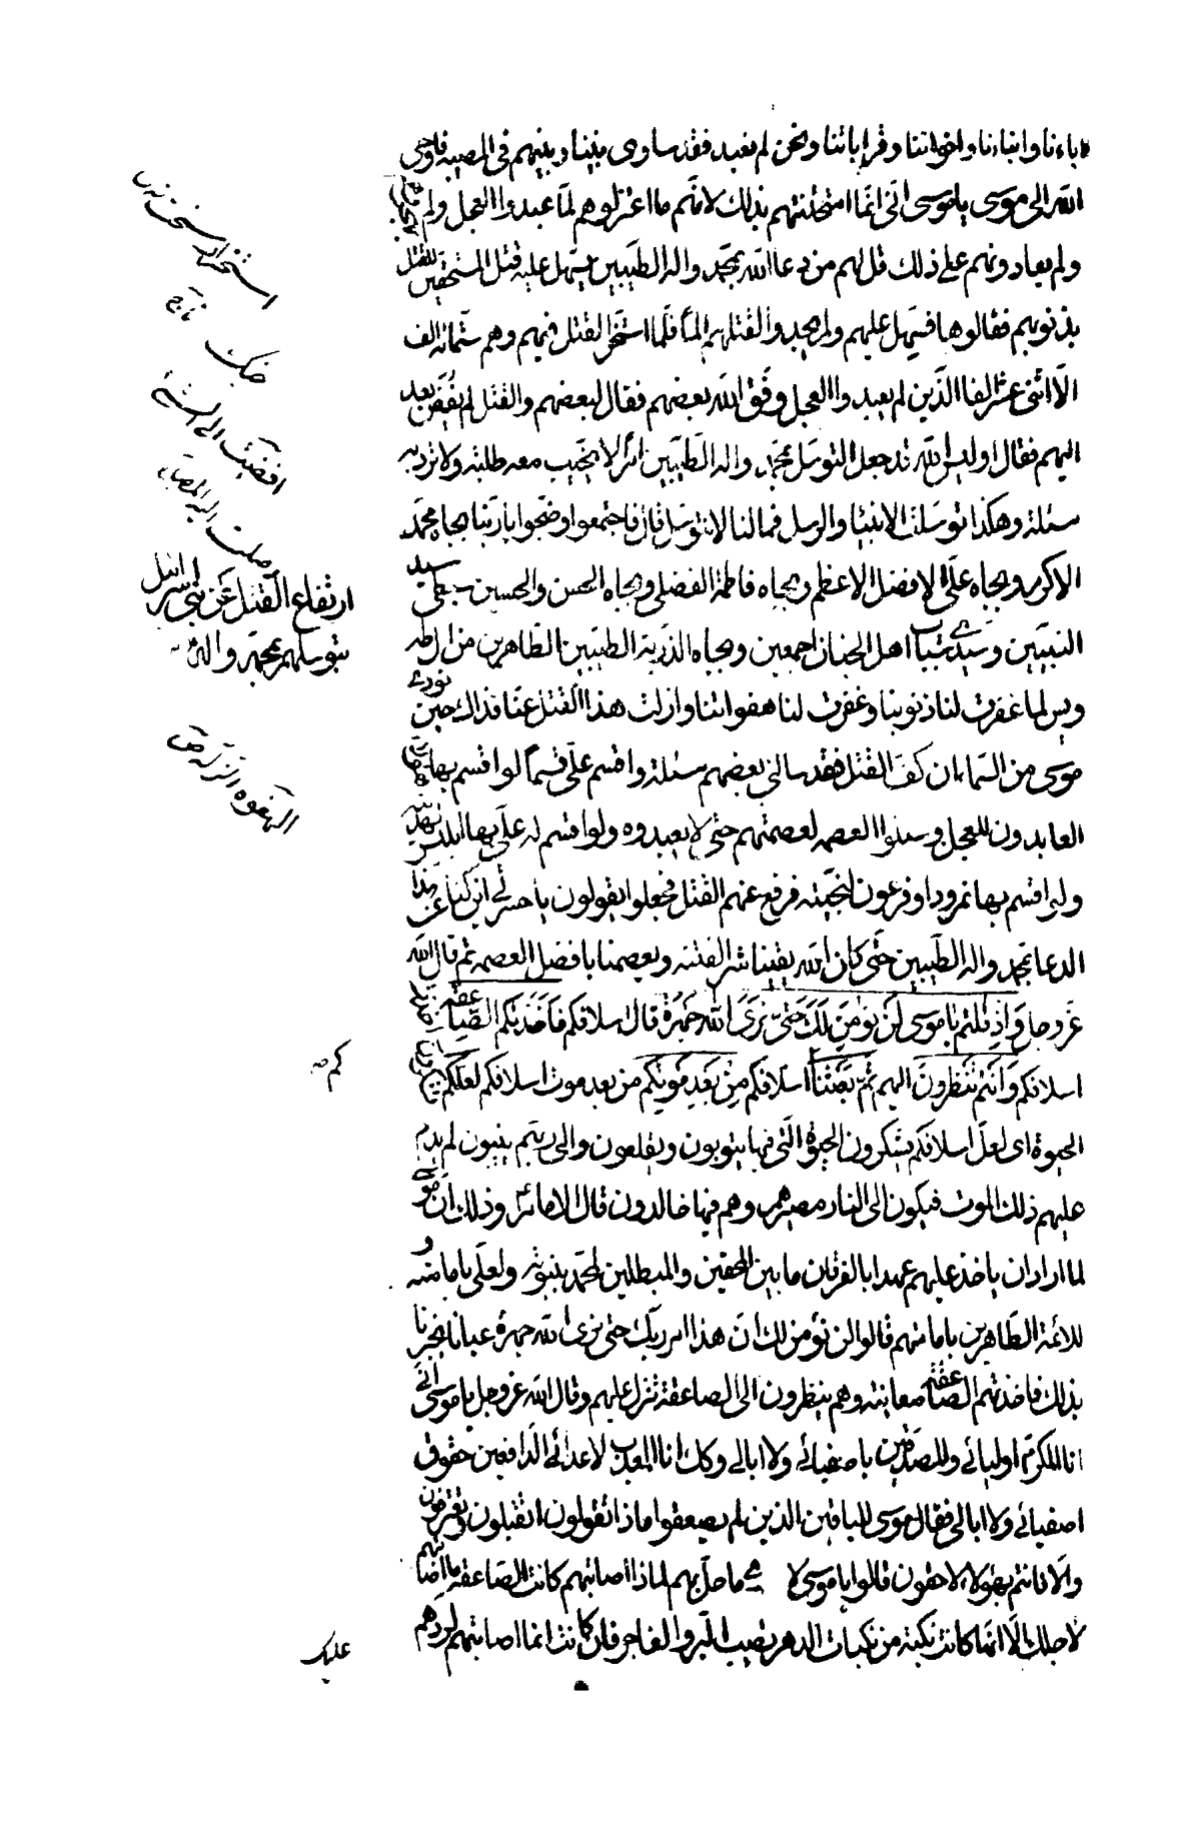 اباءنا وابناءنا واخواننا وقراباتنا ونحن لم نعبد فقد ساوى بيننا وبينهم في المصيبه فاوحى
الله الى موسى يا موسى انى انما امتحنتهم بذلك لانهم ما اعتزلوهم لما عبدوا العجل ولم يهجروهم
ولم يعادونهم على ذلك قل لهم من دعا الله بمحمد واله الطيبين يسهل عليه قتل المستحقين للقتل
بذنوبهم فقالوها فسهل عليهم ولم يجدوا لقتلهم الما فلما استحر القتل فيهم وهم ستمائة الف
الا اثنى عشر الفا الذين لم يعبدوا العجل وفق الله بعضهم فقال لبعضهم والقتل لم يفض بعد
اليهم فقال اوليس الله قد جعل التوسل بمحمد واله الطيبين امرا لا يخيب معه طلبة ولا ترد به
مسئلة وهكذا توسلت الانبياء والرسل فما لنا لا نتوسل قال فاجتمعوا وضجوا يا ربنا بجاه محمد
الاكرم وبجاه على الافضل الاعظم وبجاه فاطمة الفضلى وبجاه الحسن والحسين سبطى سيد
النبيين وسيدى شباب اهل الجنان اجمعين وبجاه الذرية الطيبين الطاهرين من ال طه
ويس لما غفرت لنا ذنوبنا وغفرت لنا هفواتنا وازلت هذا القتل عنا فذاك حين نودى
موسى من السماء ان كف القتل فقد سالنى بعضهم مسئلة واقسم على قسما لو اقسم به هؤلاء
العابدون للعجل وسئلوا العصمه لعصمتهم حتى لا يعبدوه ولو اقسم له على بها ابليس لهديته
ولو اقسم بها نمرود او فرعون لنجيته فرفع عنهم القتل فجعلوا يقولون يا حسرتى اين كنا عن هذا
الدعا بمحمد واله الطيبين حتى كان الله يقينا شر الفتنه ويعصمنا بافضل العصمه ثم قال الله
عز وجل واذ قلتم يا موسى لن نؤمن لك حتى نرى الله جهرة قال اسلافكم فاخذتكم الصاعقة اخذت
اسلافكم وانتم تنظرون اليهم ثم بعثنا اسلافكم من بعد موتكم من بعد موت اسلافكم لعلكم
الحيوة اى لعل اسلافكم يشكرون الحيوة التى فيها يتوبون ويقلعون والى ربهم ينيبون لم يدم
عليهم ذلك الموت فيكون الى النار مصيرهم وهم فيها خالدون قال الامام وذلك ان موسى
لما اراد ان ياخذ عليهم عهدا بالفرقان ما بين المحقين والمبطلين لمحمد بنبوته ولعلى بامامته و
للائمة الطاهرين بامامتهم قالوا لن نؤمن لك ان هذا امر ربك حتى نرى الله جهرة عيانا يخبرنا
بذلك فاخذتهم الصاعقة معاينة وهم ينظرون الى الصاعقة تنزل عليهم وقال الله عز وجل يا موسى انى
انا المكرم اوليائى والمصدقين باصفيائى ولا ابالى وكك انا المعذب لاعدائى الدافعين حقوق
اصفيائى ولا ابالى فقال موسى للباقين الذين لم يصعقوا ماذا تقولون اتقبلون وتعترفون
والا فانتم بهؤلاء لاحقون قالوا يا موسى لا ما حل بهم لماذا اصابتهم كانت الصاعقة ما اصابتهم
لاجلك الا انما كانت نكبة من نكبات الدهر تصيب البر والفاجر فان كانت انما اصابتهم لردهم
عليك
استحر
ضحك
افضيت الى الشئ
وصلت اليه المصباح
ارتفاع القتل عن بنى اسرائيل
بتوسلهم بمحمد واله
الهفوه الزله
كم